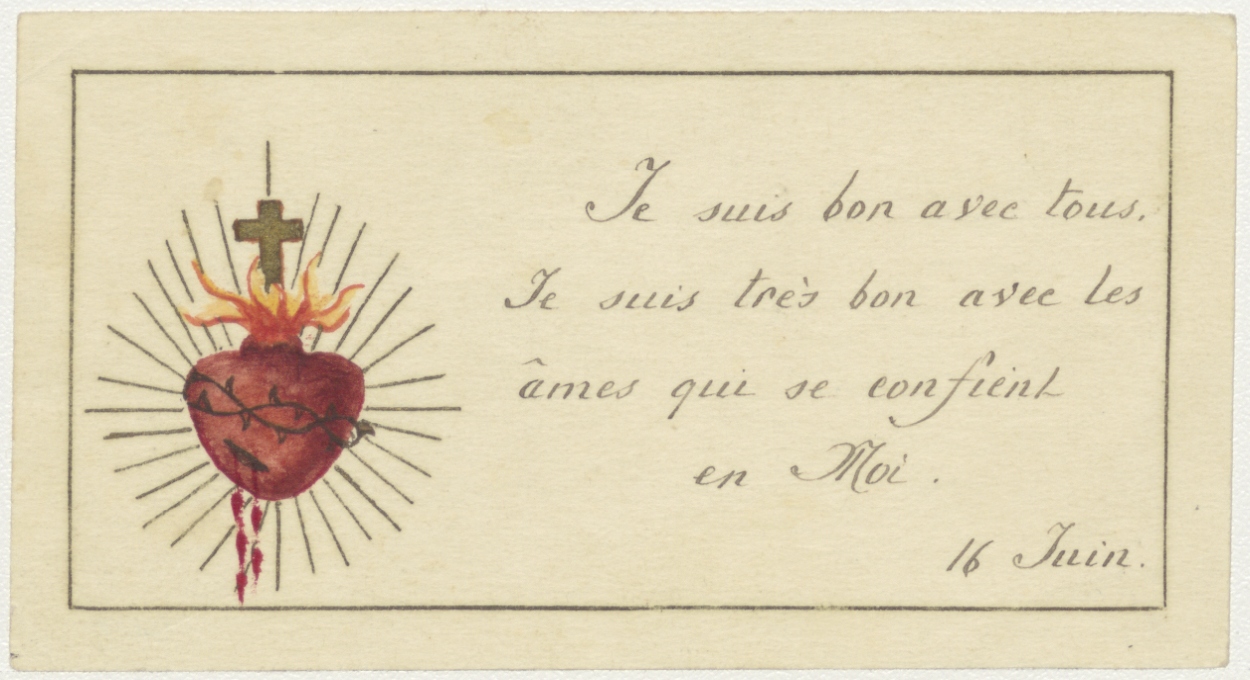 Je suis bon avec tous.
Je suis très bon avec les
âmes qui se confient
en Moi.
16 Juin.